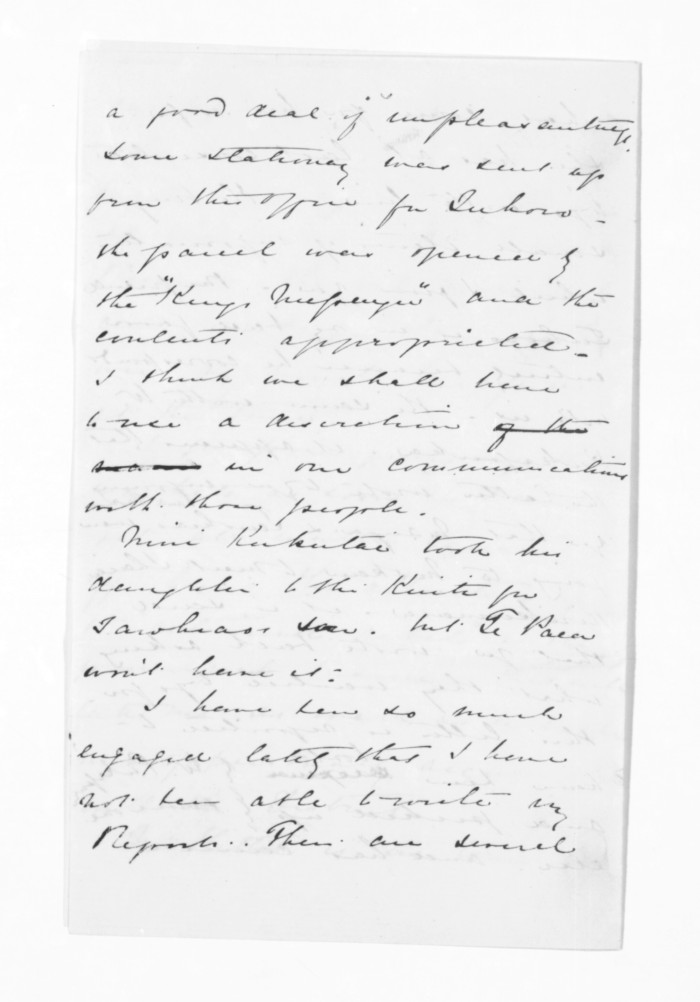 a good deal of "unpleasantness.
Some stationery was sent up
from this office for
the parcel was opened by
the "Kings Messenger" and the
contents appropriated -
I think we shall have
to use a discretion of the
in our communications
with those people.
Kukutai took his
daughter to the Kuiti for
Tawhiaos son. but Te Paea
won't have it:
I have been so much
engaged lately that I have
not been able to write my
Reports.. There are several